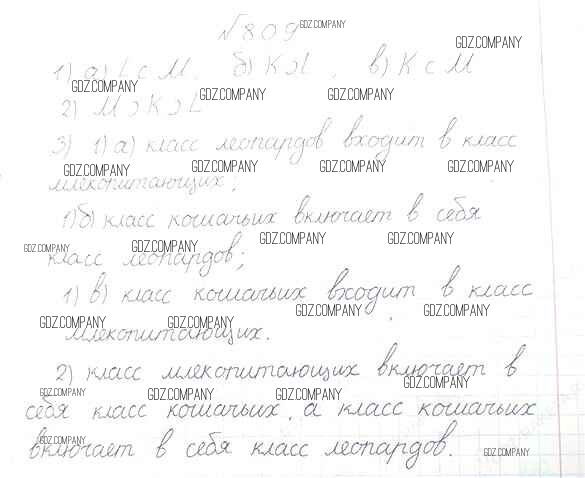 №809 GDZ.COMPANY
1) а) L ⊂ M. б) K ⊃ L . в) K ⊂ M GDZ.COMPANY
GDZ.COMPANY GDZ.COMPANY GDZ.COMPANY
2) M ⊃ K ⊃ L
3) 1) а) класс леопардов входит в класс
GDZ.COMPANY GDZ.COMPANY GDZ.COMPANY GDZ.COMPANY
млекопитающих;
1)б) класс кошачьих включает в себя
GDZ.COMPANY GDZ.COMPANY GDZ.COMPANY GDZ.COMPANY
класс леопардов;
1) в) класс кошачьих входит в класс
GDZ.COMPANY GDZ.COMPANY GDZ.COMPANY GDZ.COMPANY
млекопитающих.
2) класс млекопитающих включает в
GDZ.COMPANY GDZ.COMPANY GDZ.COMPANY GDZ.COMPANY
себя класс кошачьих, а класс кошачьих
включает в себя класс леопардов.
GDZ.COMPANY GDZ.COMPANY